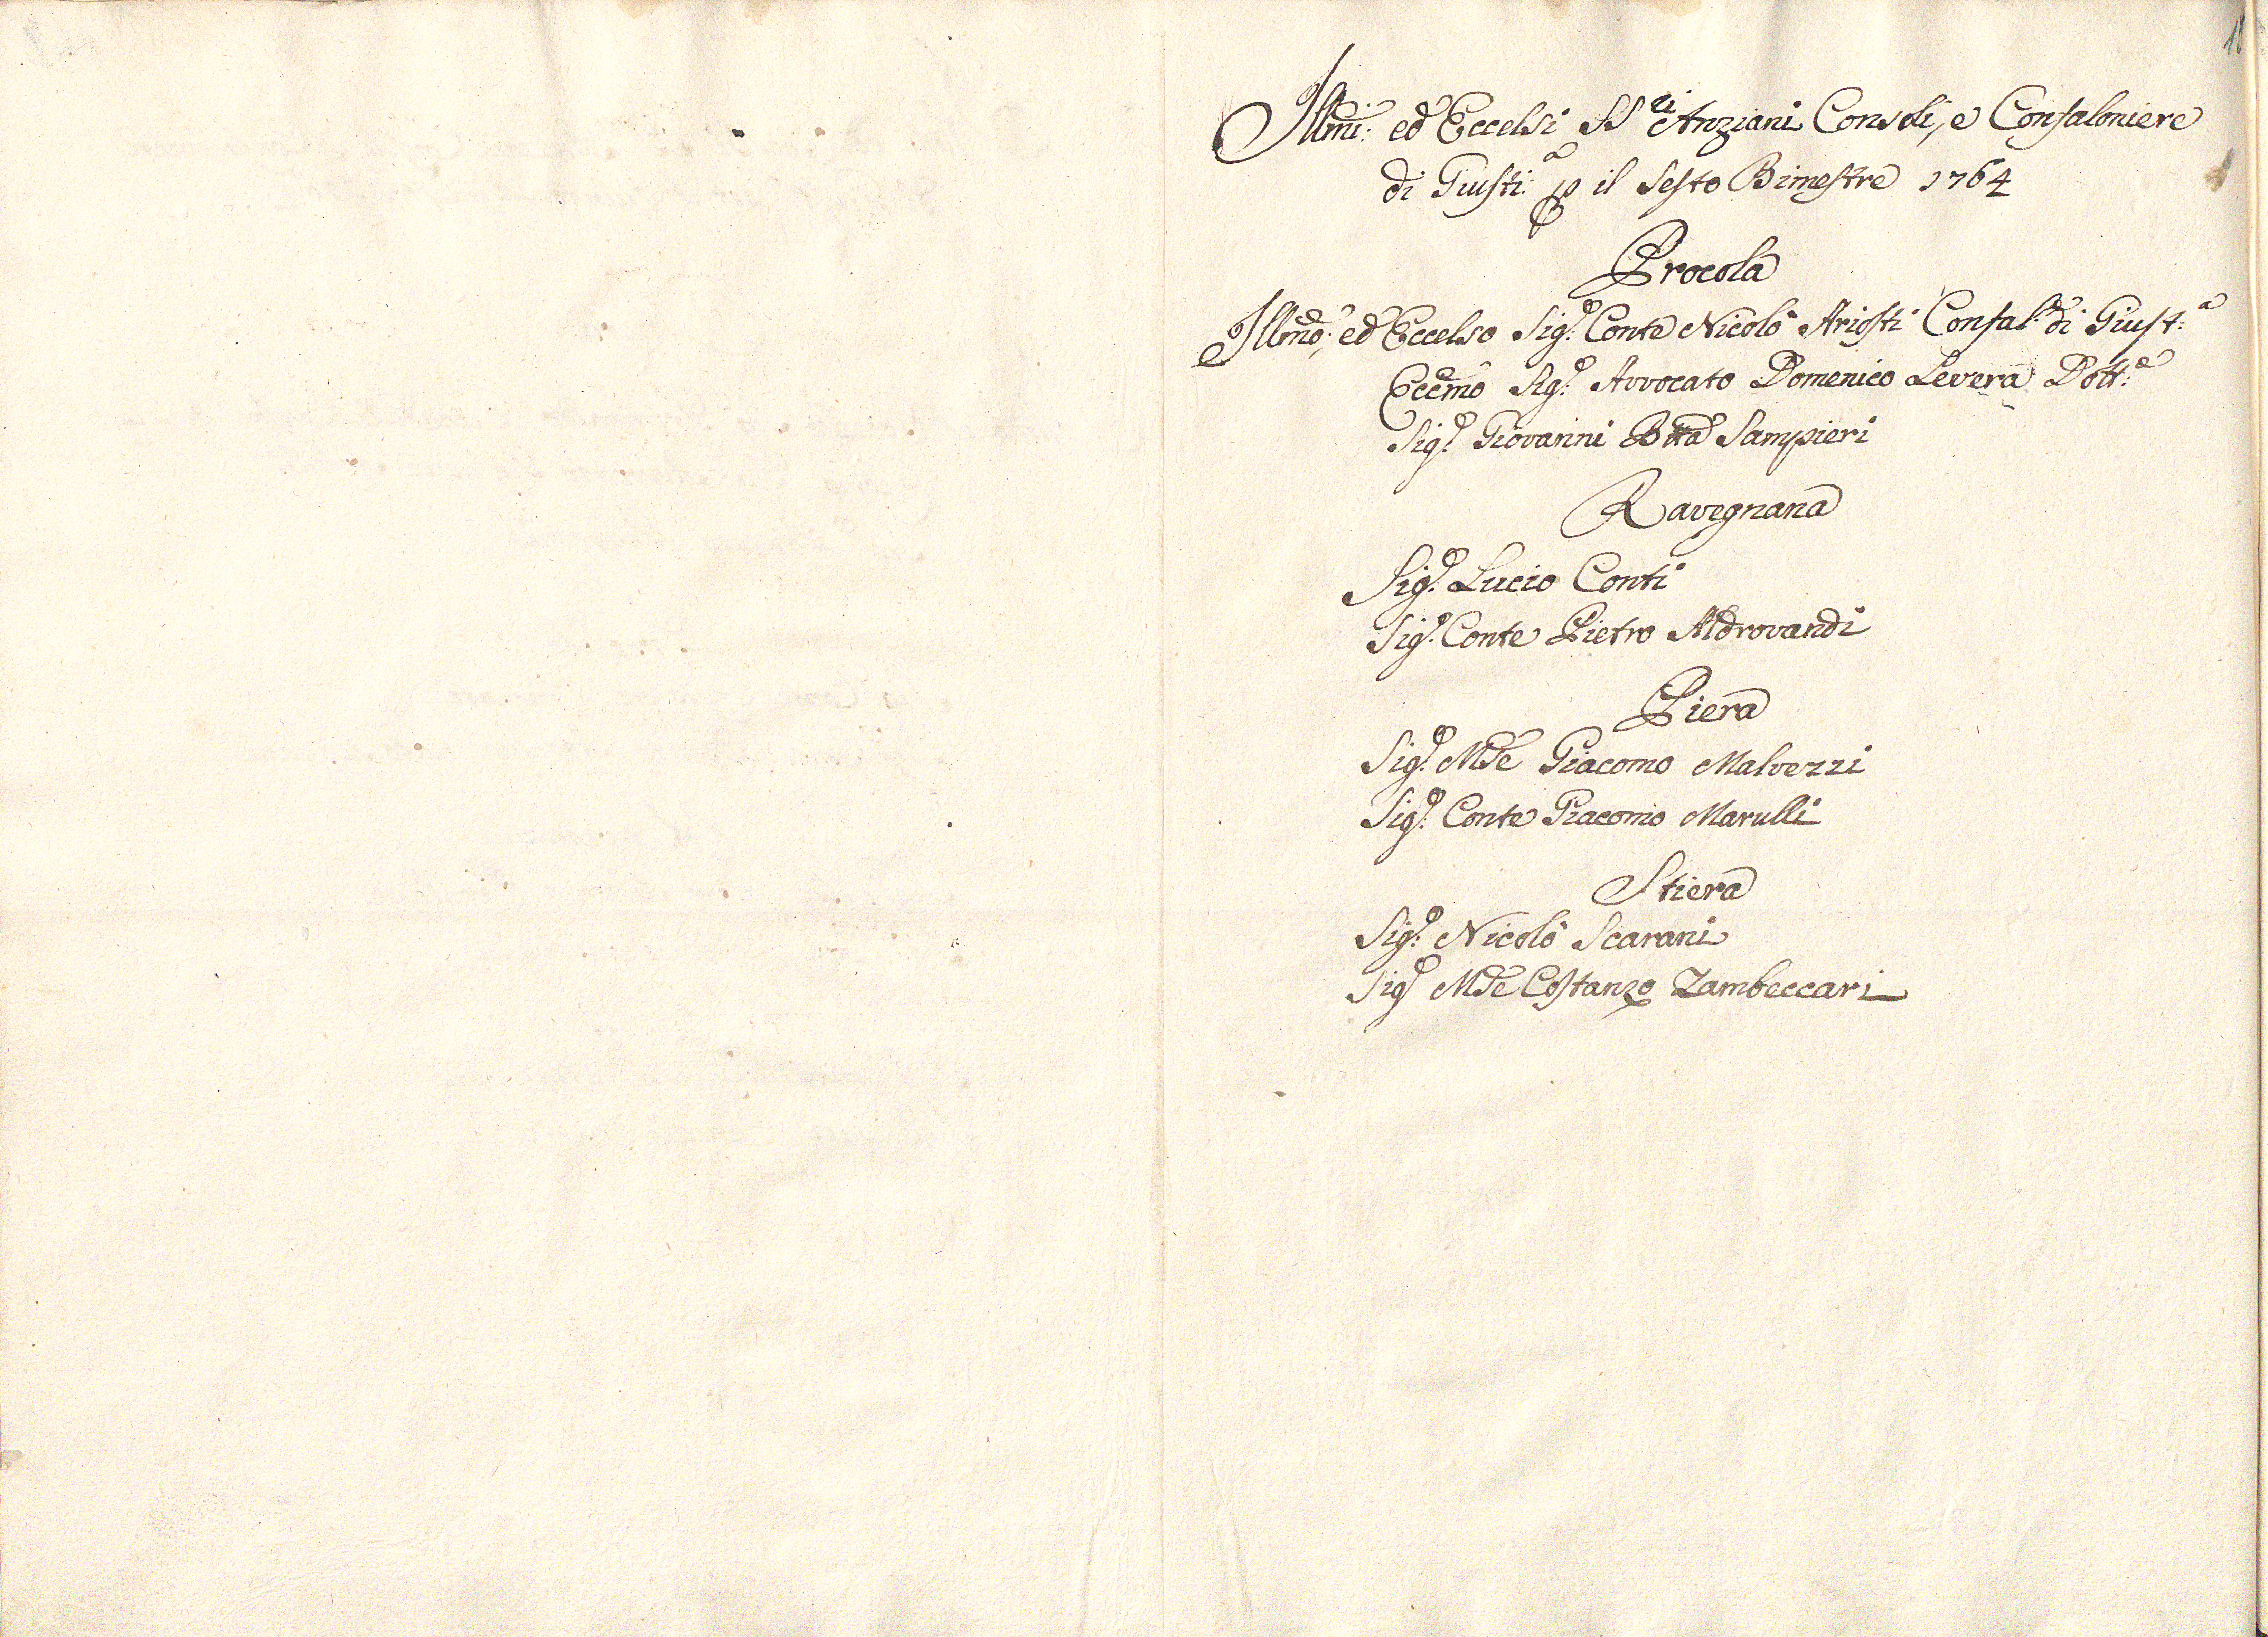 Illmi: ed Eccelsi SS.ri Anziani Consoli, e Confaloniere
di Giusti:a p il Sesto Bimestre 1764
Procola
Illmo: ed Eccelso Sig.r Conte Nicolò Ariosti Confal: di Giust:a
Eccmo Sig.r Avvocato Domenico Levera Dott:e
Sig.r Giovanni Btta Sampieri
Ravegnana
Sig.r Lucio Conti
Sig.r Conte Pietro Aldrovandi
Piera
Sig.r Mse Giacomo Malvezzi
Sig.r Conte Giacomo Marulli
Stiera
Sig.r Nicolò Scarani
Sig.r Mse Costanzo Zambeccari